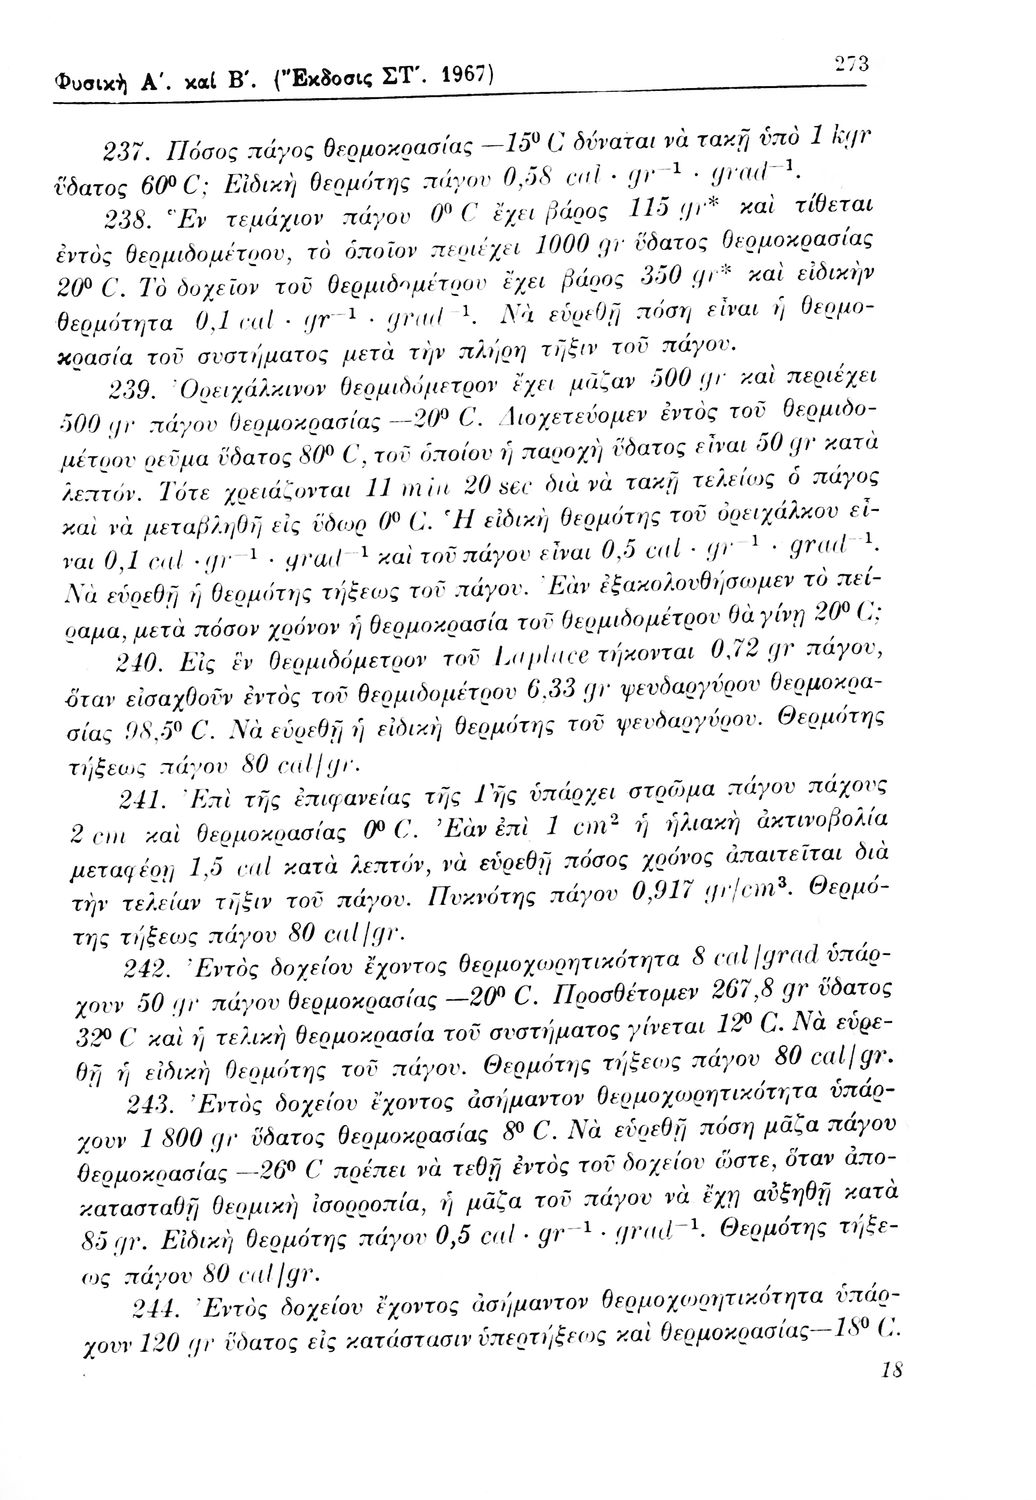 Φυσικὴ Α΄. καί Β΄. (Ἔκδοσις ΣΤ΄. 1967)
273
237. Πόσος πάγος θερμοκρασίας —15⁰ C δύναται νὰ τακῇ ὑπὸ 1 kgr
ὕδατος 60⁰ C; Εἰδικὴ θερμότης πάγου 0,58 cal · gr⁻¹ · grad⁻¹.
238. Ἓν τεμάχιον πάγου 0⁰ C ἔχει βάρος 115 gr* καὶ τίθεται
ἐντὸς θερμιδομέτρου, τὸ ὁποῖον περιέχει 1000 gr ὕδατος θερμοκρασίας
20⁰ C. Τὸ δοχεῖον τοῦ θερμιδομέτρου ἔχει βάρος 350 gr* καὶ εἰδικὴν
θερμότητα 0,1 cal · gr⁻¹ · grad⁻¹. Νὰ εὑρεθῇ πόση εἶναι ἡ θερμο-
κρασία τοῦ συστήματος μετὰ τὴν πλήρη τῆξιν τοῦ πάγου.
239. Ὀρειχάλκινον θερμιδόμετρον ἔχει μᾶζαν 500 gr καὶ περιέχει
500 gr πάγου θερμοκρασίας —20⁰ C. Διοχετεύομεν ἐντὸς τοῦ θερμιδο-
μέτρου ρεῦμα ὕδατος 80⁰ C, τοῦ ὁποίου ἡ παροχὴ ὕδατος εἶναι 50 gr κατὰ
λεπτόν. Τότε χρειάζονται 11 min 20 sec διὰ νὰ τακῇ τελείως ὁ πάγος
καὶ νὰ μεταβληθῇ εἰς ὕδωρ 0⁰ C. Ἡ εἰδικὴ θερμότης τοῦ ὀρειχάλκου εἶ-
ναι 0,1 cal · gr⁻¹ · grad⁻¹ καὶ τοῦ πάγου εἶναι 0,5 cal · gr⁻¹ · grad⁻¹.
Νὰ εὑρεθῇ ἡ θερμότης τήξεως τοῦ πάγου. Ἐὰν ἐξακολουθήσωμεν τὸ πεί-
ραμα, μετὰ πόσον χρόνον ἡ θερμοκρασία τοῦ θερμιδομέτρου θὰ γίνῃ 20⁰ C;
240. Εἰς ἓν θερμιδόμετρον τοῦ Laplace τήκονται 0,72 gr πάγου,
ὅταν εἰσαχθοῦν ἐντὸς τοῦ θερμιδομέτρου 6,33 gr ψευδαργύρου θερμοκρα-
σίας 98,5⁰ C. Νὰ εὑρεθῇ ἡ εἰδικὴ θερμότης τοῦ ψευδαργύρου. Θερμότης
τήξεως πάγου 80 cal/gr.
241. Ἐπὶ τῆς ἐπιφανείας τῆς Γῆς ὑπάρχει στρῶμα πάγου πάχους
2 cm καὶ θερμοκρασίας 0⁰ C. Ἐὰν ἐπὶ 1 cm² ἡ ἡλιακὴ ἀκτινοβολία
μεταφέρῃ 1,5 cal κατὰ λεπτόν, νὰ εὑρεθῇ πόσος χρόνος ἀπαιτεῖται διὰ
τὴν τελείαν τῆξιν τοῦ πάγου. Πυκνότης πάγου 0,917 gr/cm³. Θερμό-
της τήξεως πάγου 80 cal/gr.
242. Ἐντὸς δοχείου ἔχοντος θερμοχωρητικότητα 8 cal/grad ὑπάρ-
χουν 50 gr πάγου θερμοκρασίας —20⁰ C. Προσθέτομεν 267,8 gr ὕδατος
32⁰ C καὶ ἡ τελικὴ θερμοκρασία τοῦ συστήματος γίνεται 12⁰ C. Νὰ εὑρε-
θῇ ἡ εἰδικὴ θερμότης τοῦ πάγου. Θερμότης τήξεως πάγου 80 cal/gr.
243. Ἐντὸς δοχείου ἔχοντος ἀσήμαντον θερμοχωρητικότητα ὑπάρ-
χουν 1 800 gr ὕδατος θερμοκρασίας 8⁰ C. Νὰ εὑρεθῇ πόση μᾶζα πάγου
θερμοκρασίας —26⁰ C πρέπει νὰ τεθῇ ἐντὸς τοῦ δοχείου ὥστε, ὅταν ἀπο-
κατασταθῇ θερμικὴ ἰσορροπία, ἡ μᾶζα τοῦ πάγου νὰ ἔχῃ αὐξηθῇ κατὰ
85 gr. Εἰδικὴ θερμότης πάγου 0,5 cal · gr⁻¹ · grad⁻¹. Θερμότης τήξε-
ως πάγου 80 cal/gr.
244. Ἐντὸς δοχείου ἔχοντος ἀσήμαντον θερμοχωρητικότητα ὑπάρ-
χουν 120 gr ὕδατος εἰς κατάστασιν ὑπερτήξεως καὶ θερμοκρασίας—18⁰ C.
18